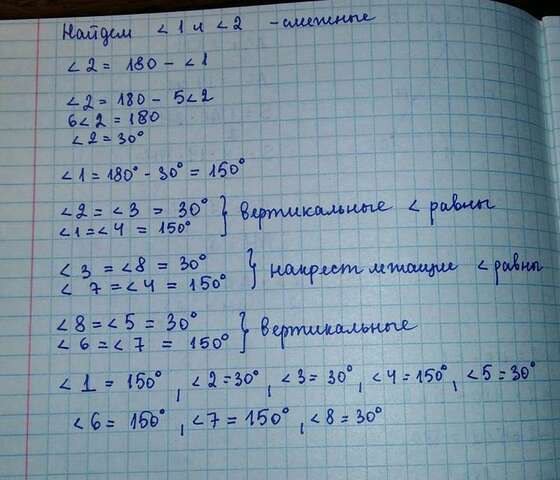 Найдем ∠1 и ∠2 - смежные
∠2 = 180 - ∠1
∠2 = 180 - 5∠2
6∠2 = 180
∠2 = 30°
∠1 = 180° - 30° = 150°
∠2 = ∠3 = 30° } вертикальные ∠ равны
∠1 = ∠4 = 150°
∠3 = ∠8 = 30° } накрест лежащие ∠ равны
∠7 = ∠4 = 150°
∠8 = ∠5 = 30° } вертикальные
∠6 = ∠7 = 150°
∠1 = 150°, ∠2 = 30°, ∠3 = 30°, ∠4 = 150°, ∠5 = 30°
∠6 = 150°, ∠7 = 150°, ∠8 = 30°